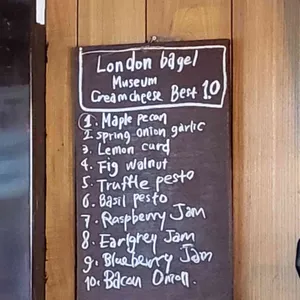 London bagel
Museum
Creamcheese Best 10
1. Maple pecan
2. spring onion garlic
3. Lemon curd
4. Fig walnut
5. Truffle pesto
6. Basil pesto
7. Raspberry Jam
8. Earlgrey Jam
9. Blueberry Jam
10. Bacon Onion.